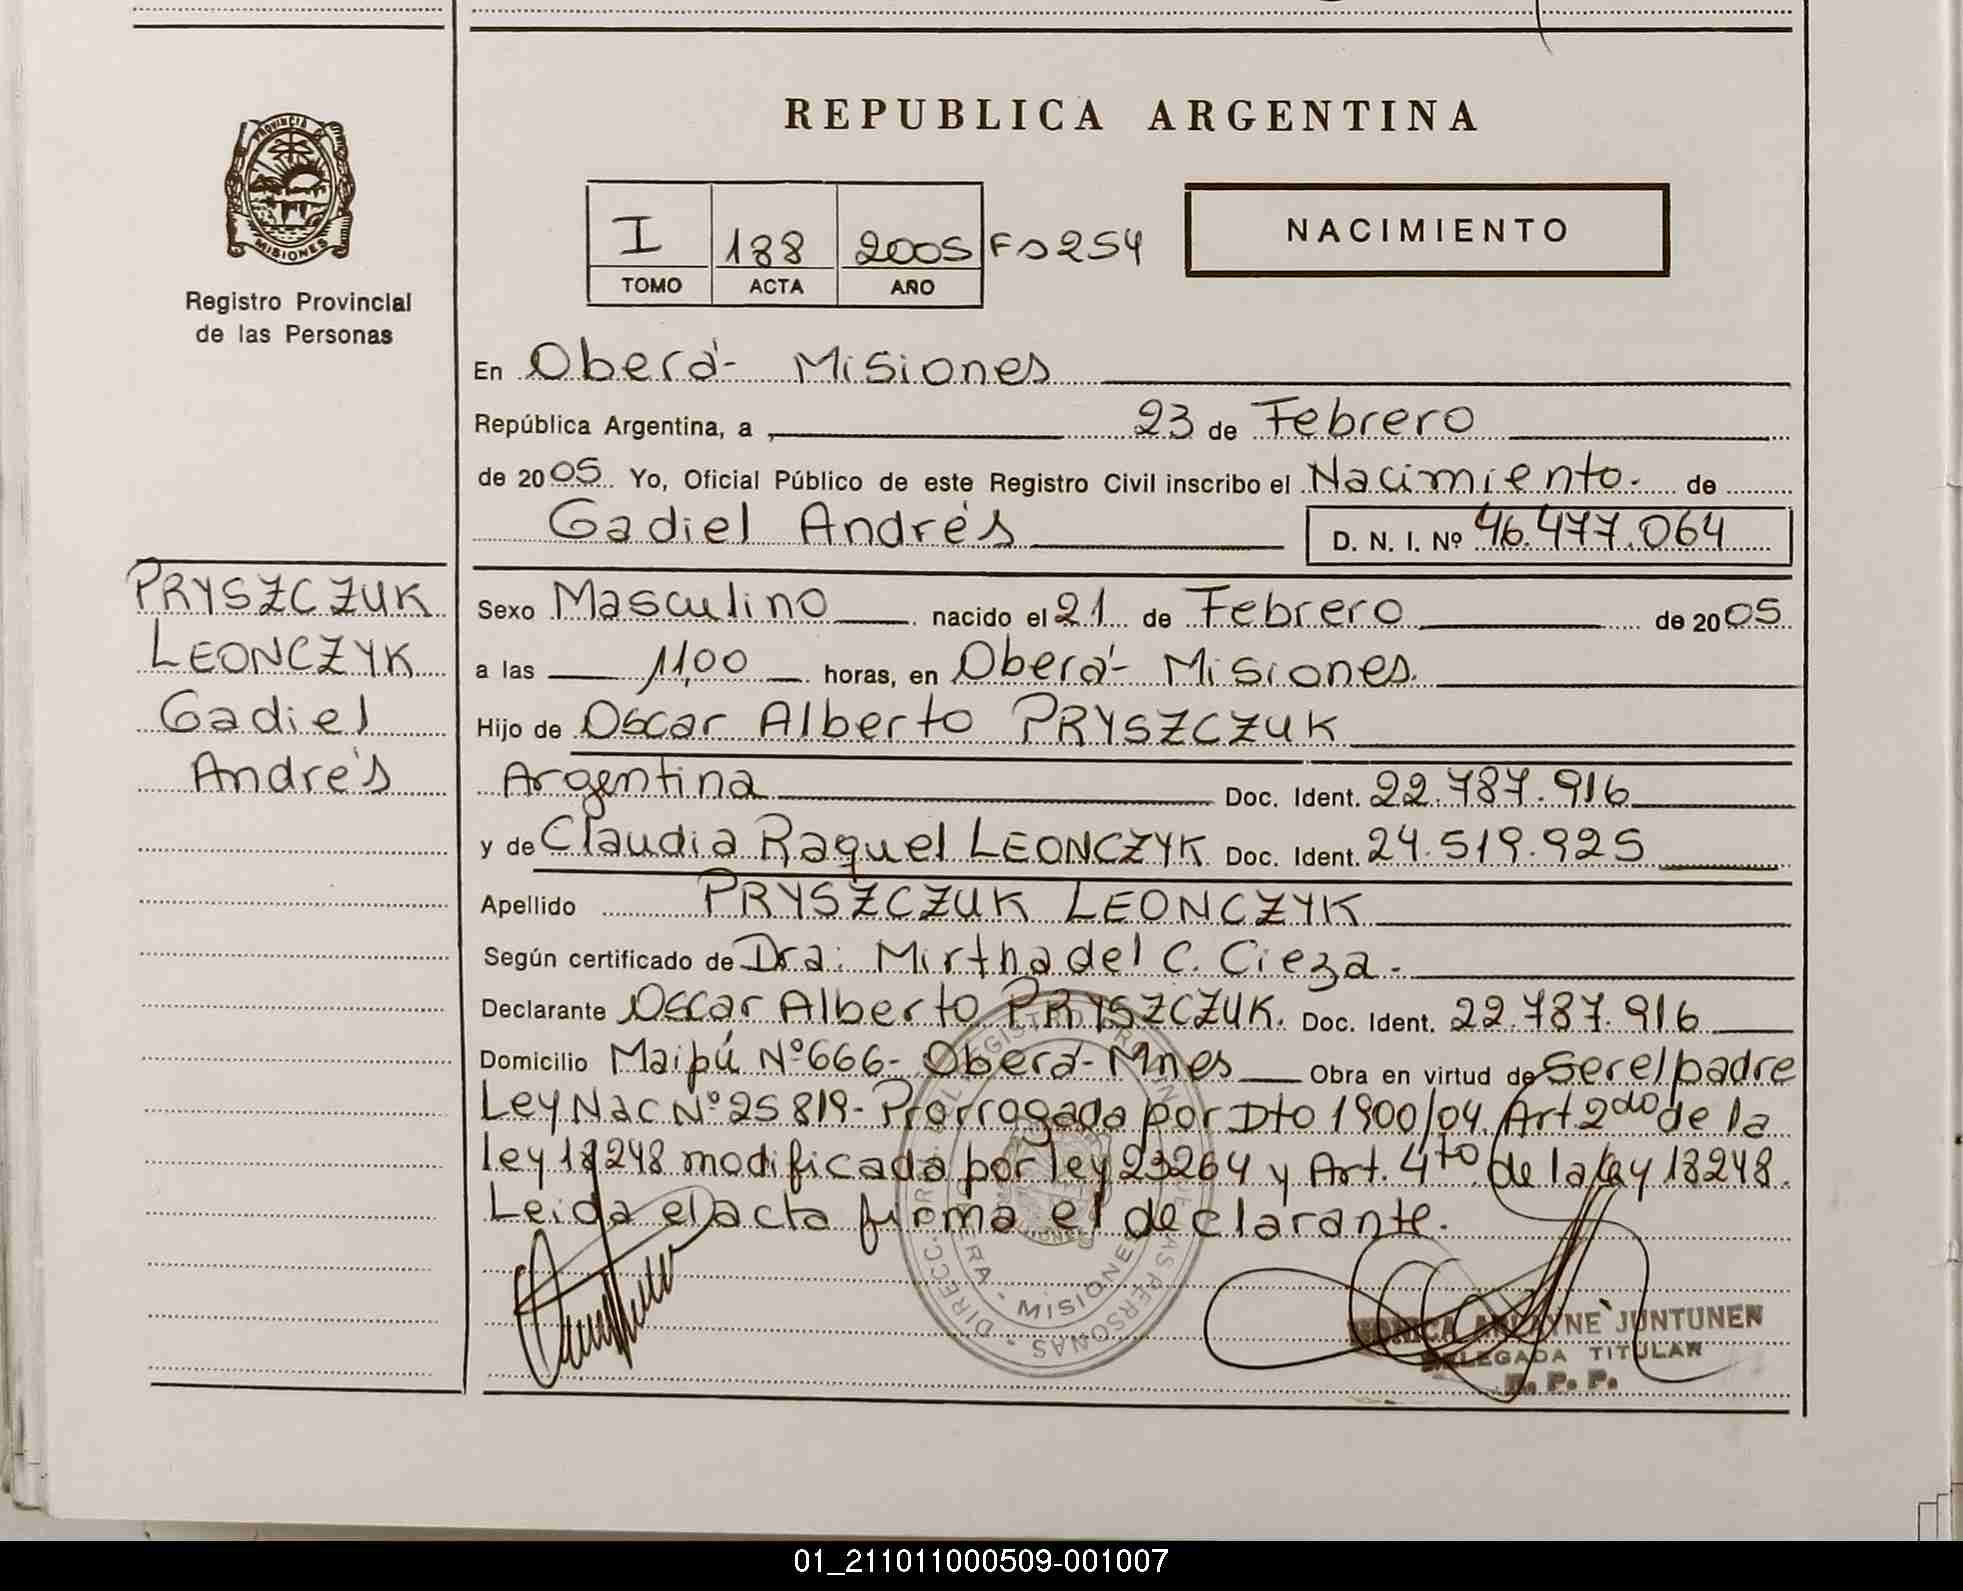 REPUBLICA ARGENTINA
PROVINCIA DE
MISIONES
Registro Provincial
de las Personas
I 188 2005 Fo 254
TOMO ACTA AÑO
NACIMIENTO
En Oberá- Misiones
República Argentina, a 23 de Febrero
de 2005 Yo, Oficial Público de este Registro Civil inscribo el Nacimiento. de
Gadiel Andrés D. N. I. Nº 46.477.064
PRYSZCZUK
LEONCZYK
Gadiel
Andrés
Sexo Masculino nacido el 21 de Febrero de 2005
a las 11,00 horas, en Oberá- Misiones.
Hijo de Oscar Alberto PRYSZCZUK
Argentina Doc. Ident. 22.787.916
y de Claudia Raquel LEONCZYK Doc. Ident. 24.519.925
Apellido PRYSZCZUK LEONCZYK
Según certificado de Dra: Mirtha del C. Cieza.
Declarante Oscar Alberto PRYSZCZUK. Doc. Ident. 22.787.916
Domicilio Maipú Nº 666- Oberá- Mnes Obra en virtud de Ser el padre
Ley Nac Nº 25819- Prorrogada por Dto 1900/04. Art 2do de la
ley 18248 modificada por ley 23264 y Art. 4to de la ley 18248.
Leida el acta firma el declarante.
MISIONES
JUNTUNEN
DELEGADA TITULAR
R. P. P.
01_211011000509-001007